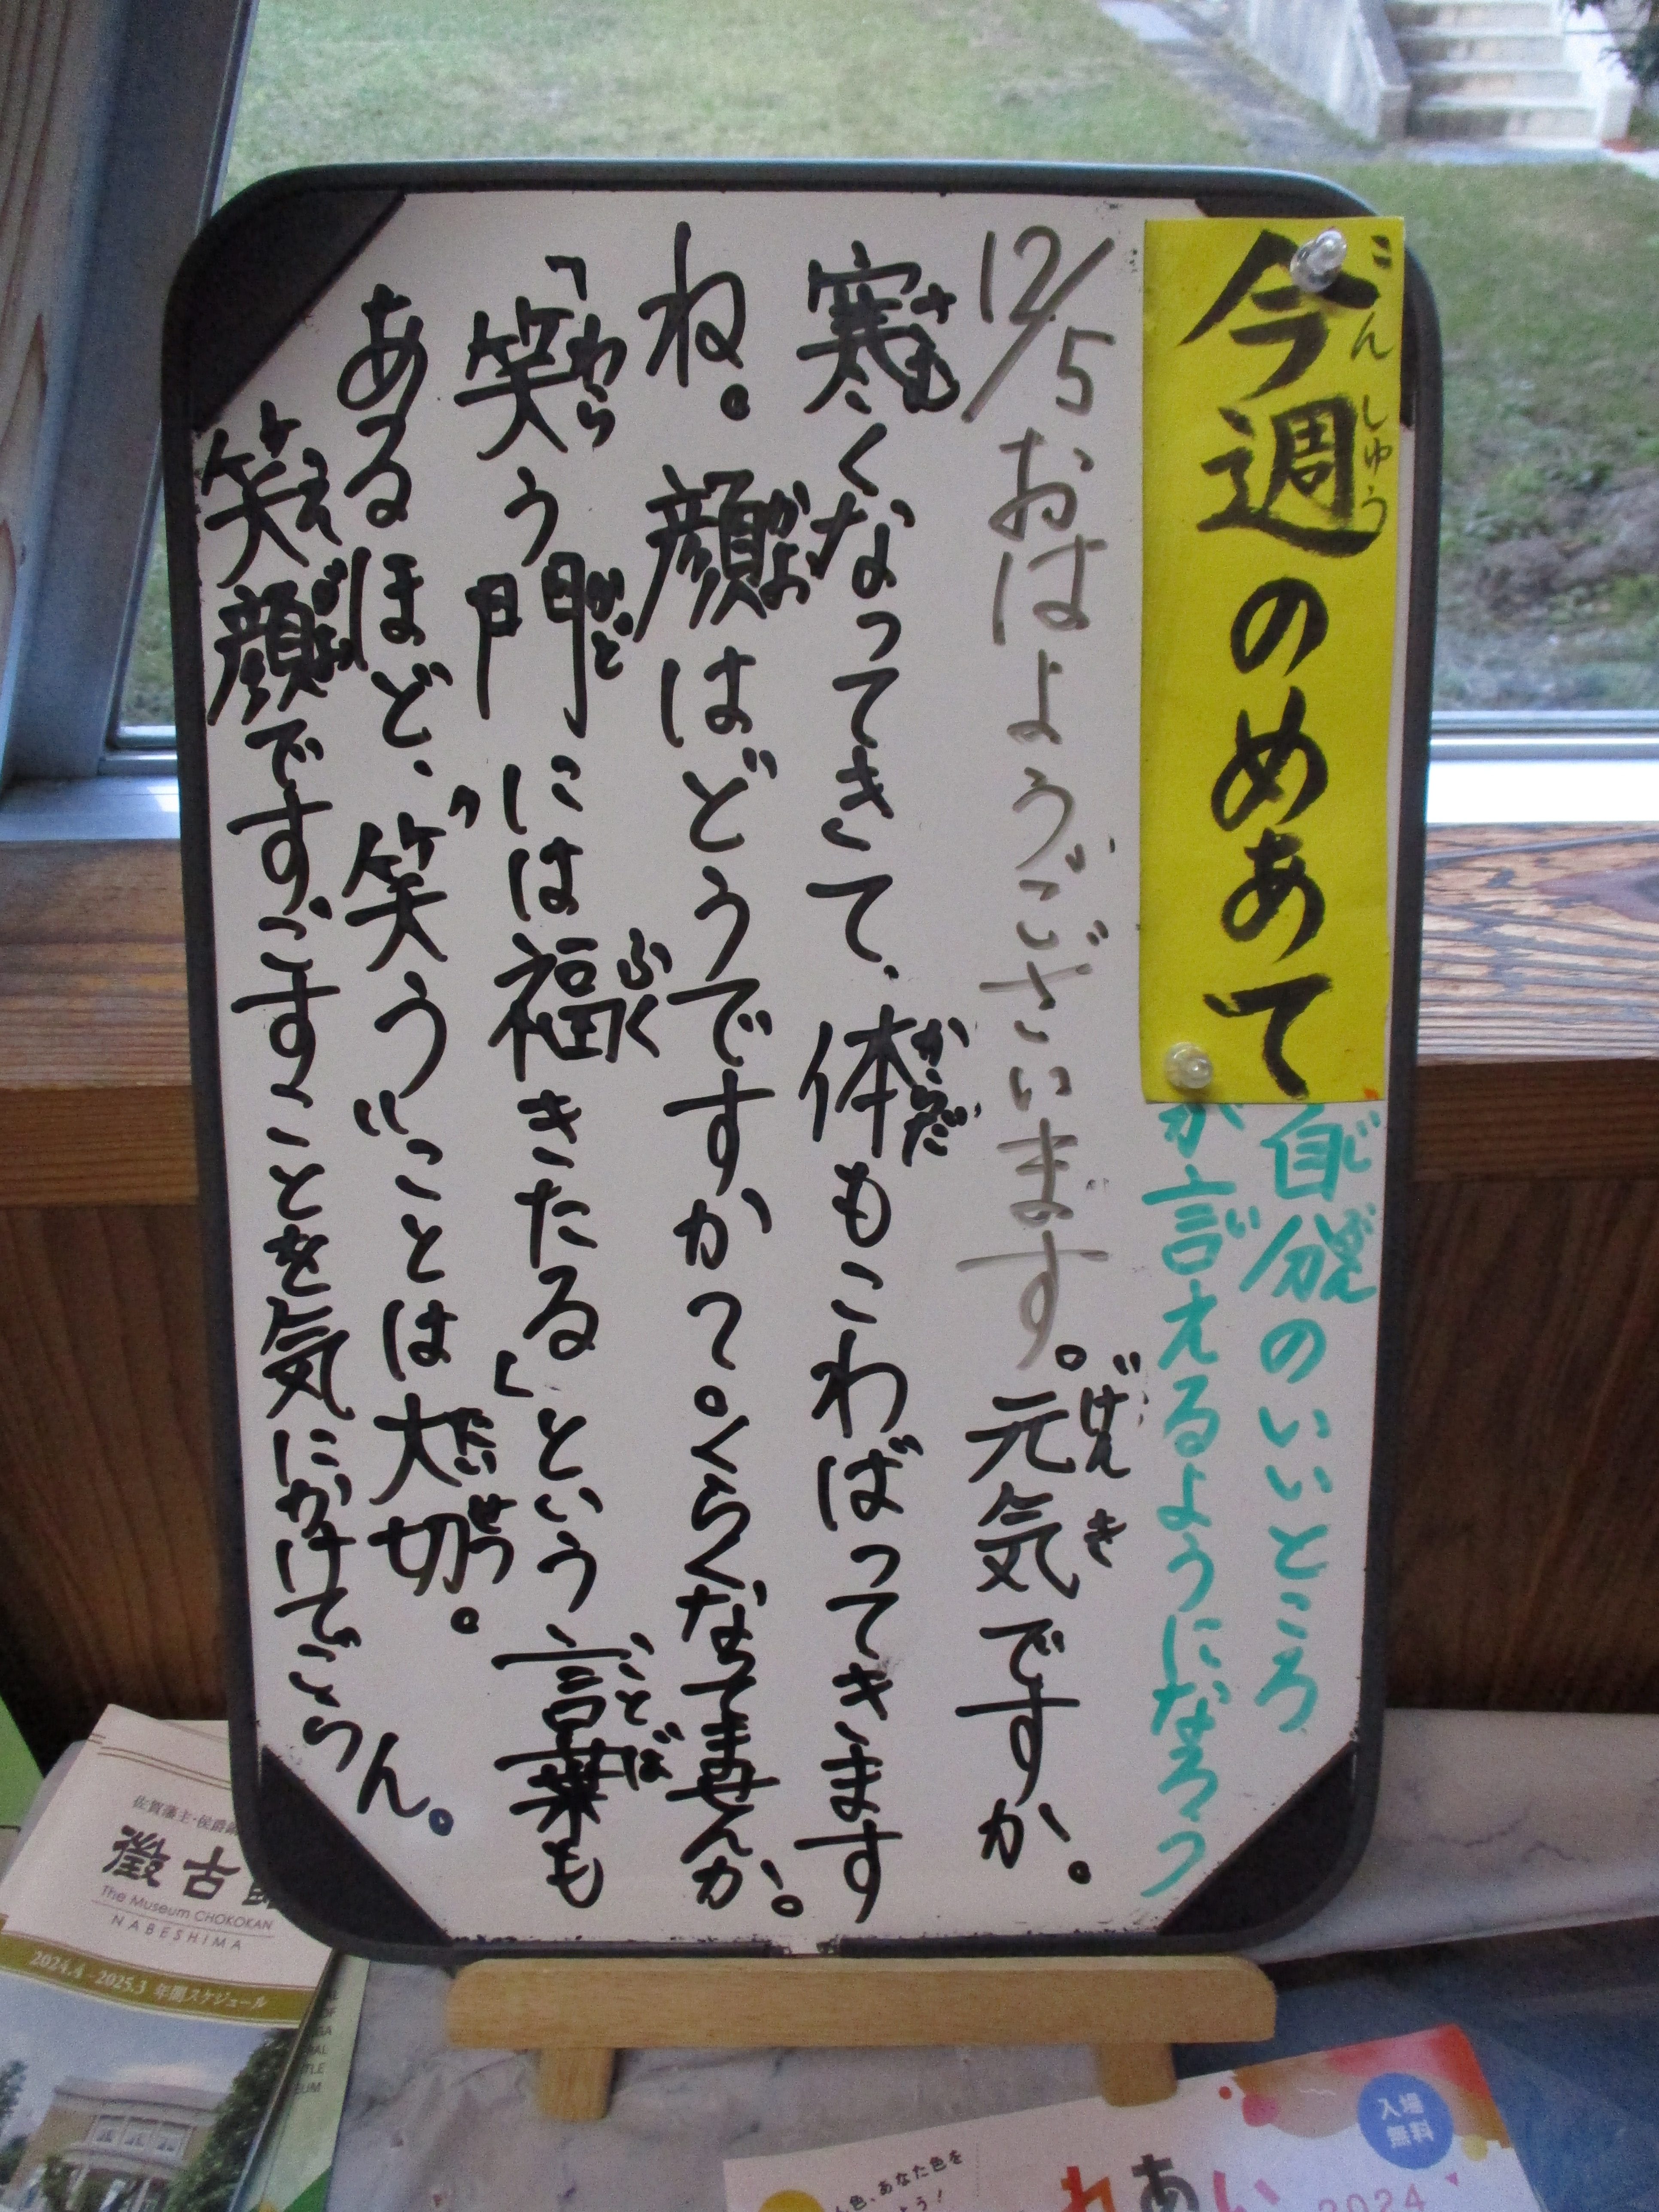 今週のめあて
こんしゅう
自分のいいところ
じぶん
が言えるようになろう
い
12/5 おはようございます。元気ですか。
げんき
寒くなってきて、体もこわばってきます
さむ
からだ
ね。顔はどうですか?くらくなってませんか。
かお
「笑う門には福きたる」という言葉も
わら
かど
ふく
ことば
あるほど、"笑う"ことは大切。
たいせつ
笑顔ですごすことを気にかけてごらん。
えがお
佐賀藩主・侯爵
徴古
The Museum CHOKOKAN
NABESHIMA
2024.4-2025.3 年間スケジュール
入場
無料
色、あなた色を
よう!
れあい
2024